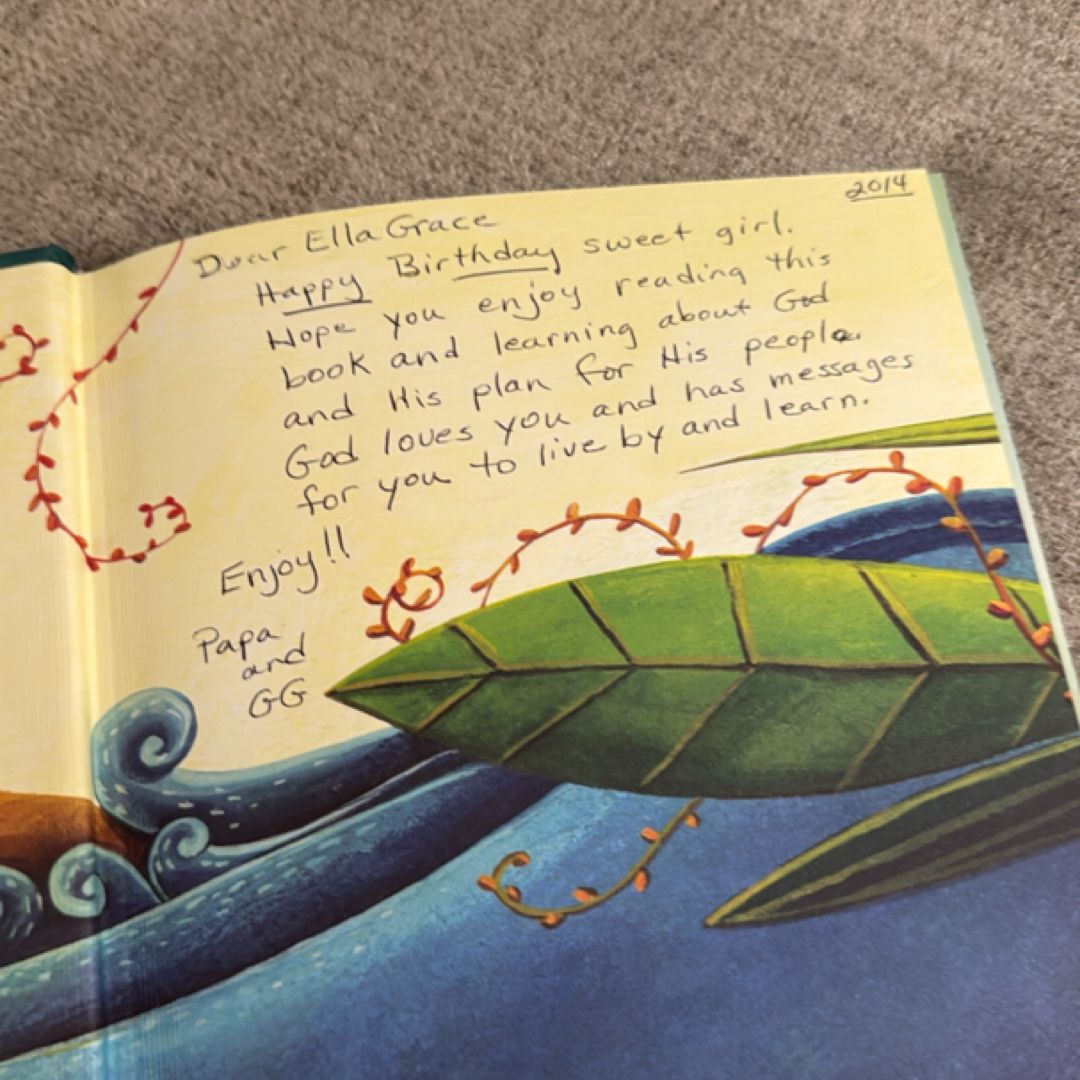 2014
Dear Ella Grace
Happy Birthday sweet girl.
Hope you enjoy reading this
book and learning about God
and His plan for His people.
God loves you and has messages
for you to live by and learn.
Enjoy!!
Papa
and
GG